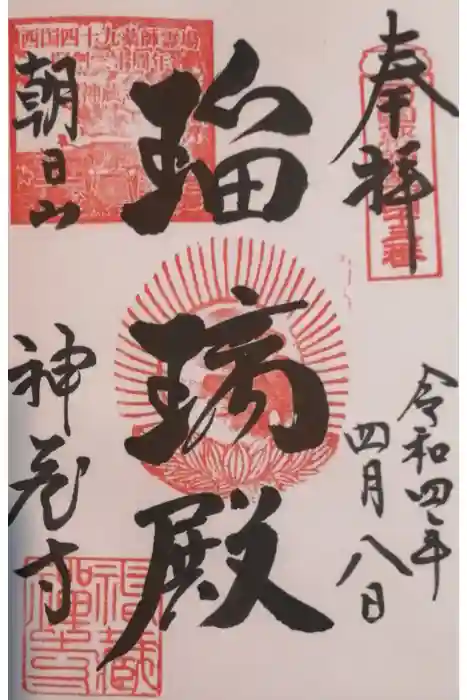 奉拝
令和四年
四月八日
瑠璃殿
西国四十九薬師霊場
朝日山
神蔵寺